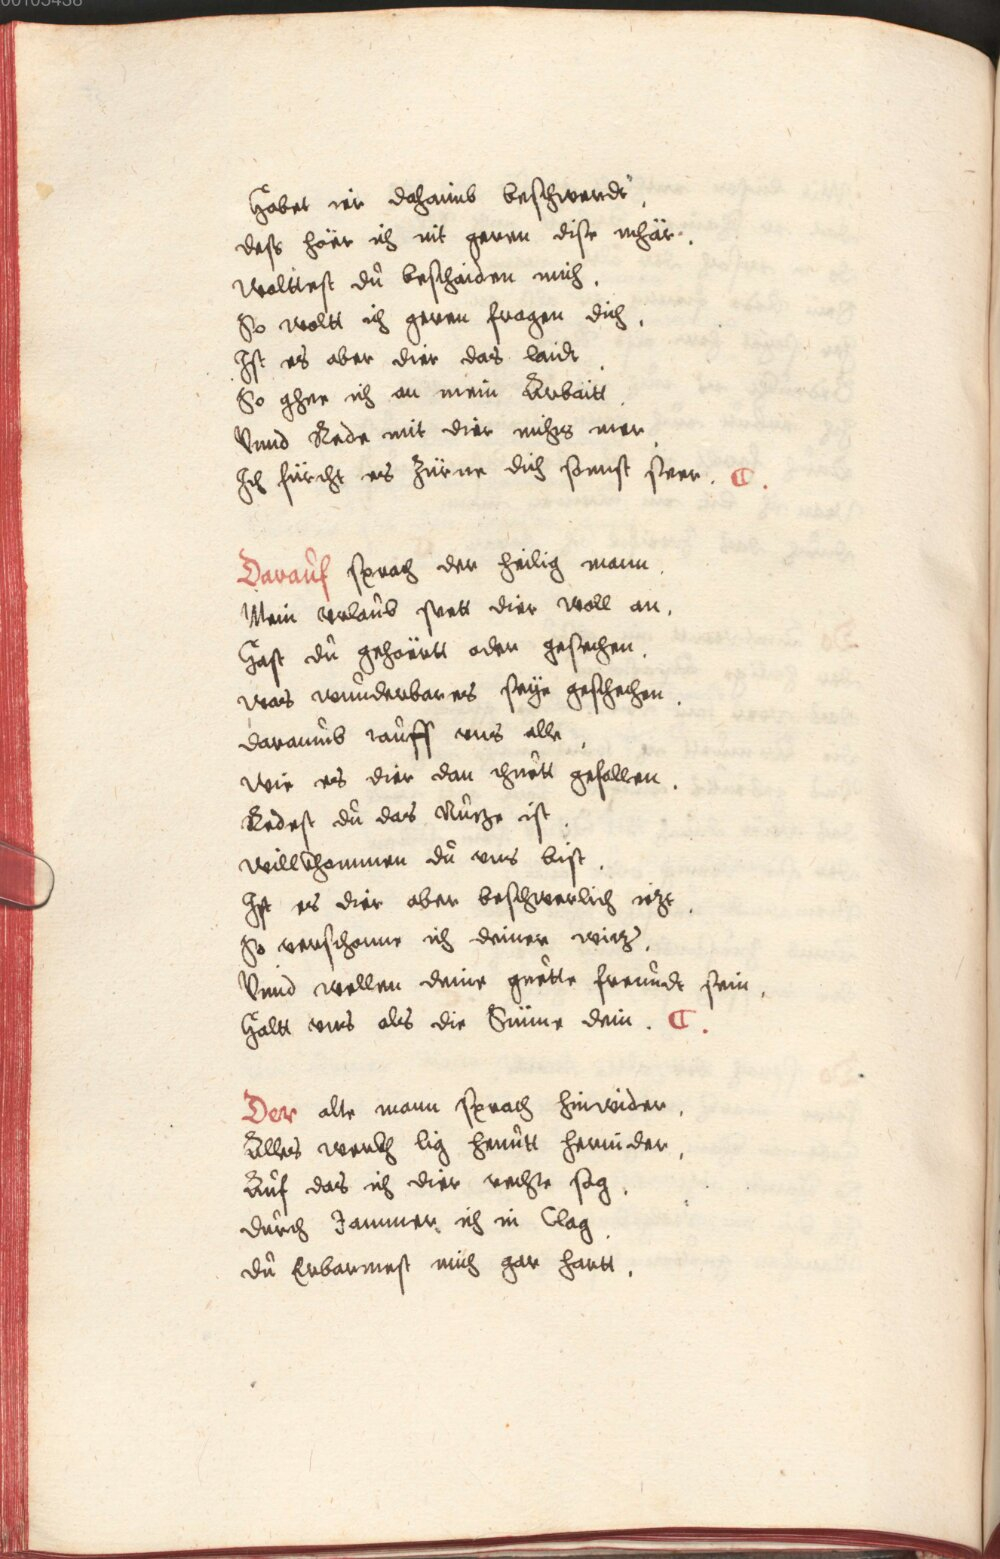 00103438
Habet ier dahaimb beschwerdt,
dess hoër ich nit geren dise mhär.
Wolttest dŭ beschaiden mich.
So woltt ich geren fragen dich.
Ist es aber dier das laidt
So ghee ich an mein Arbaitt.
Vnnd Rede mit dier nichts mer.
Ich fürcht es Zürne dich sonst seer. C.
Daraŭf sprach der heilig mann.
Mein vrlaŭb sett dier woll an.
Hast dŭ gehoërtt oder gesechen.
was wŭnderbares seÿe geschechen.
daraumb raŭff vns alle,
wie es dier dan thuett gefallen.
Redest dŭ das Nŭtze ist.
willkhommen dŭ vns bist.
Ist es dier aber beschwerlich ietzt.
So verschonne ich deiner witz.
Vnnd wellen deine guette freŭndt sein.
Haltt vns als die Sünne dein. C.
Der alte mann sprach hinwider.
Alles werckh lig heŭtt hernider.
Aŭf das ich dier rechte sag.
dŭrch Jammer ich in Clag.
dŭ Erbarmest mich gar hartt.